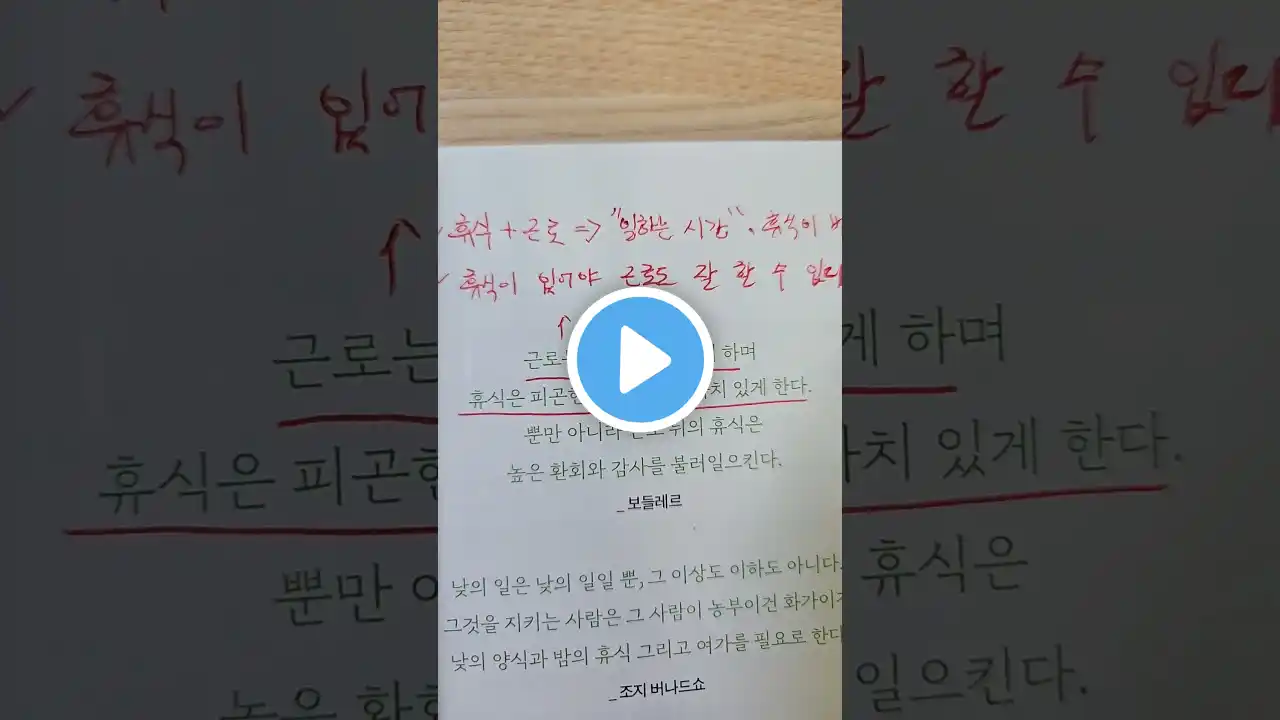 휴식 + 근로 => "일하는 시간". 휴식이
휴식이 있어야 근로도 잘 할 수 있다
↑
하며
휴식은 피곤한 가치 있게 한다.
뿐만 아니라 근로 뒤의 휴식은
높은 환회와 감사를 불러일으킨다.
_ 보들레르
낮의 일은 낮의 일일 뿐, 그 이상도 이하도 아니다.
그것을 지키는 사람은 그 사람이 농부이건 화가이건
낮의 양식과 밤의 휴식 그리고 여가를 필요로 한다
_ 조지 버나드쇼